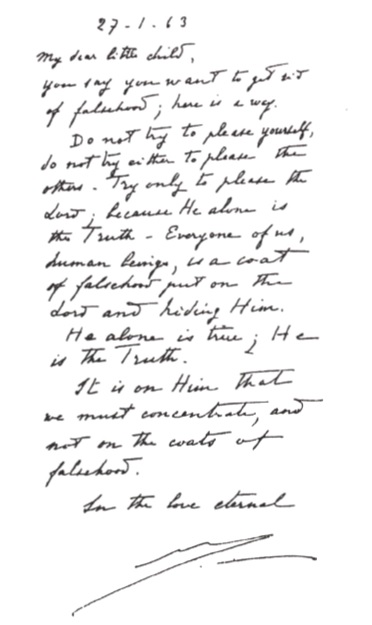 27-1-63
My dear little child,
you say you want to get rid
of falsehood; here is a way.
Do not try to please yourself,
do not try either to please the
others - Try only to please the
Lord; because He alone is
the Truth - Everyone of us,
human beings, is a coat
of falsehood put on the
Lord and hiding Him.
He alone is true; He
is the Truth.
It is on Him that
we must concentrate, and
not on the coats of
falsehood.
In the love eternal